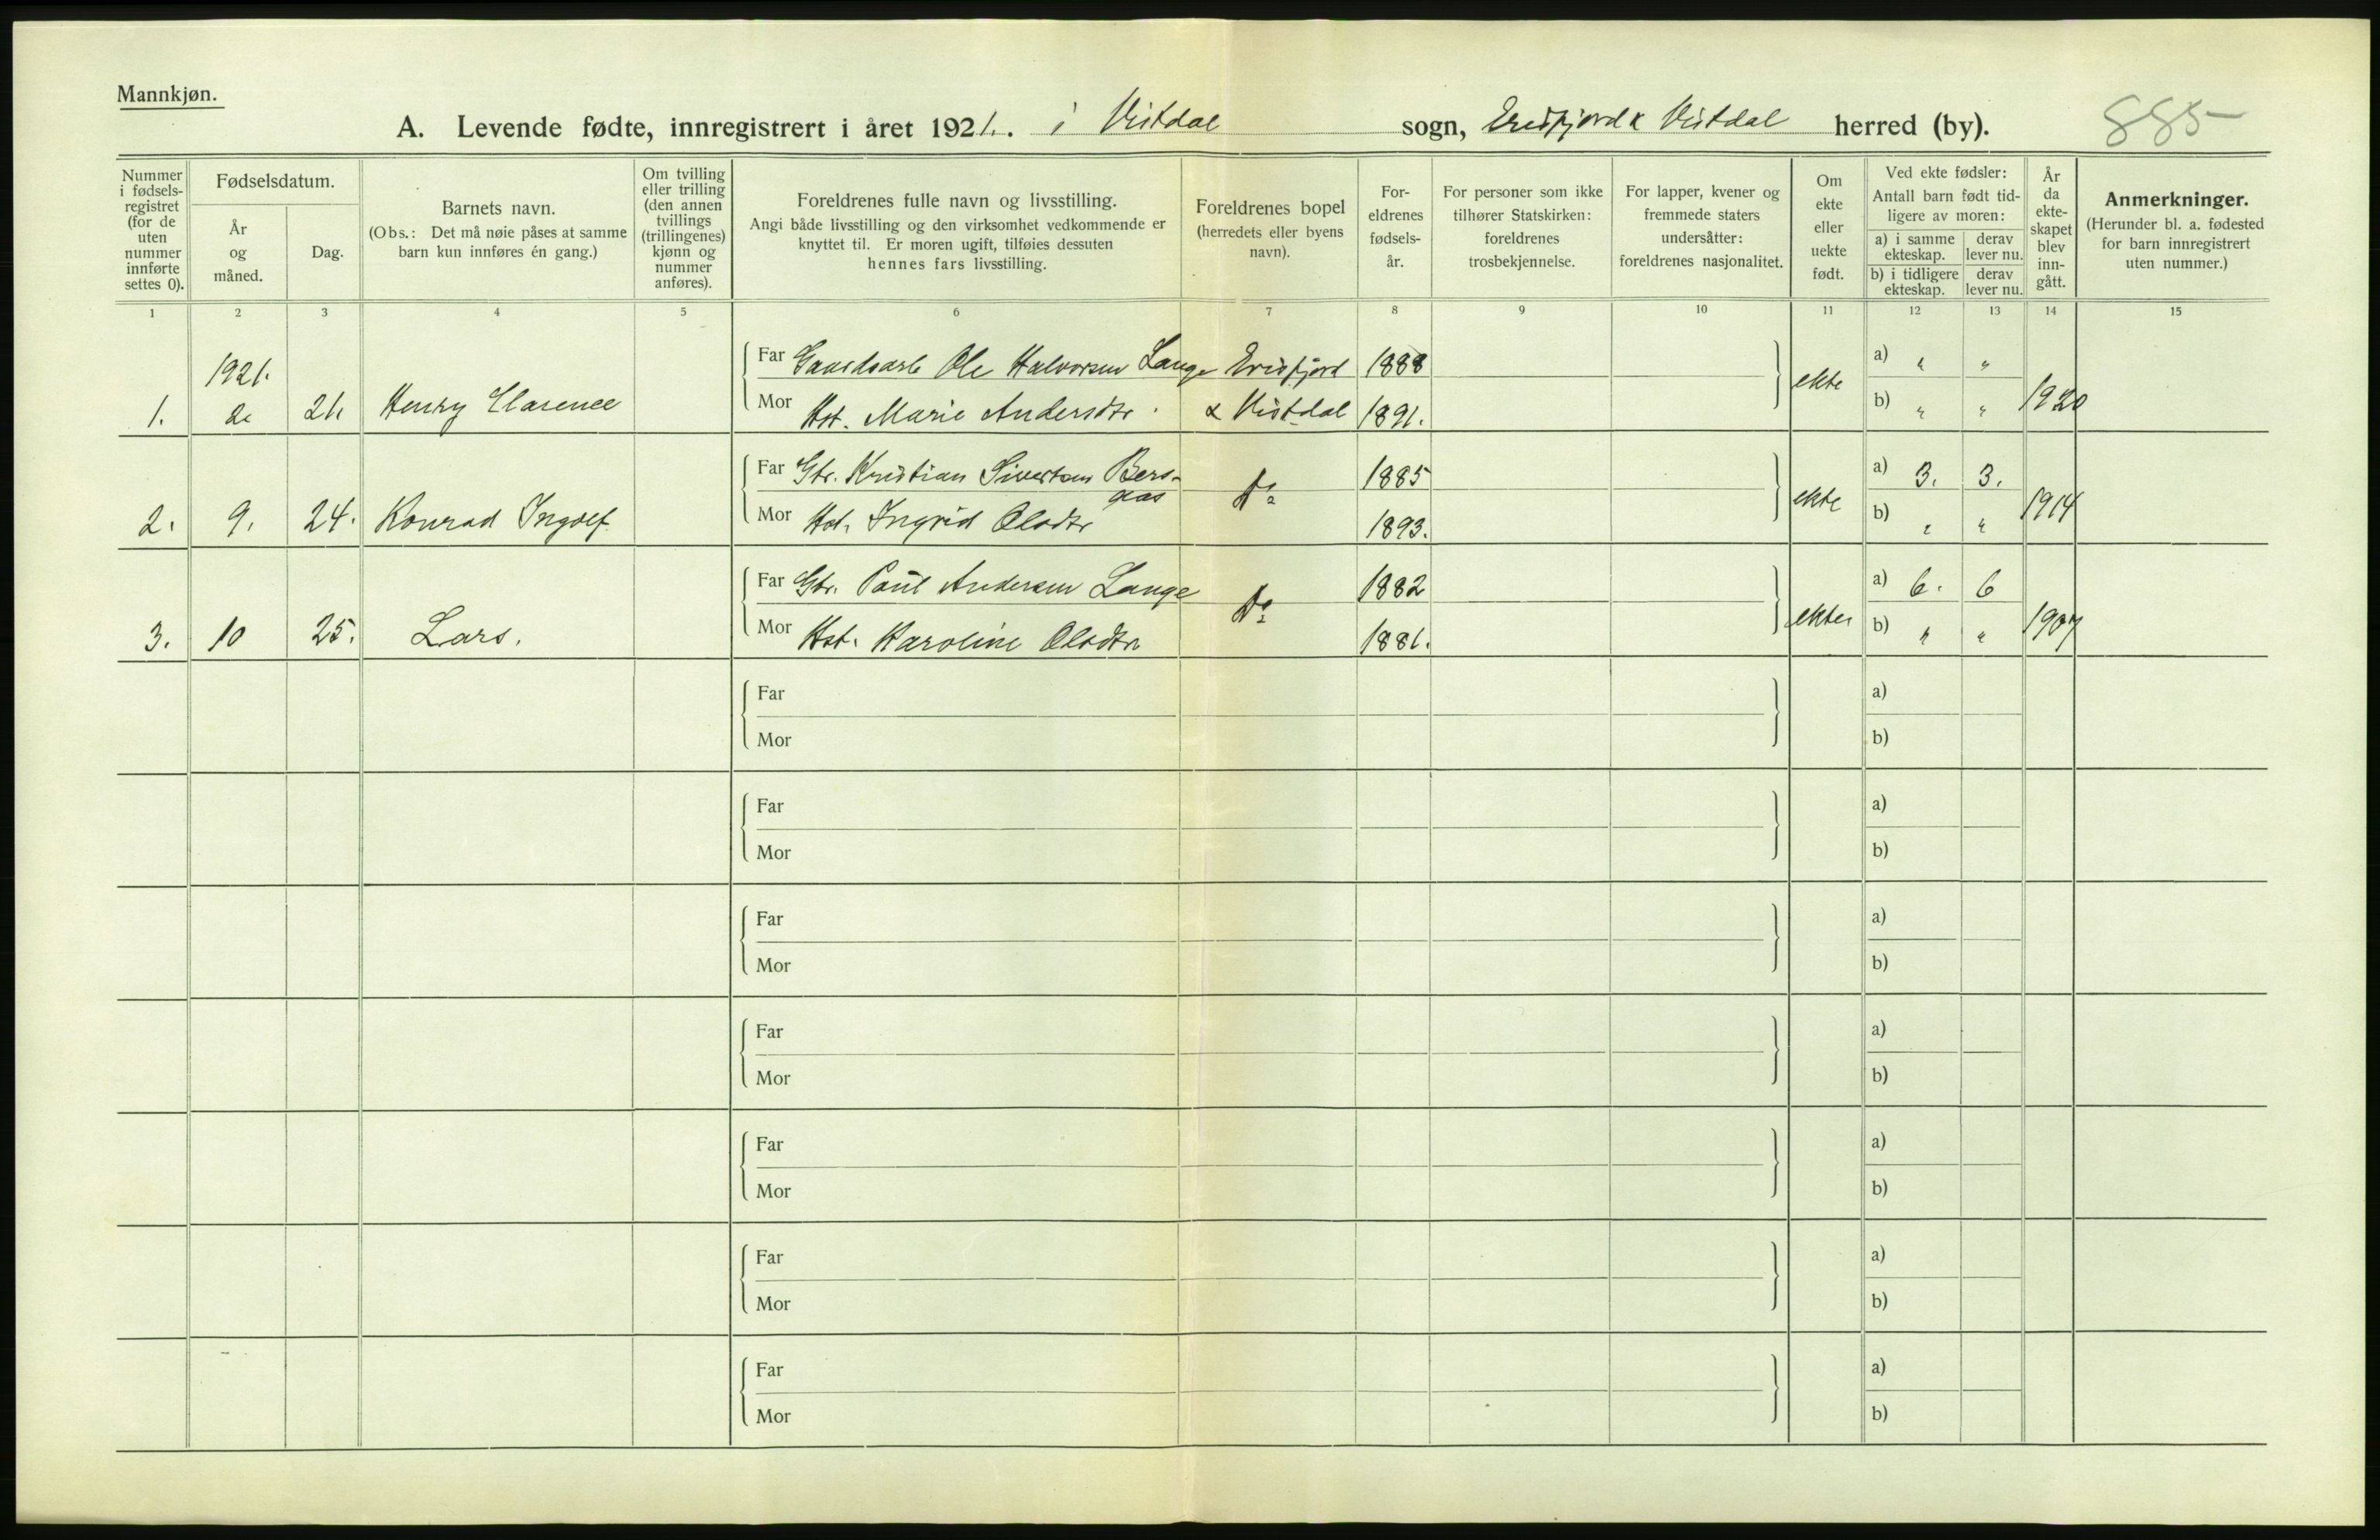 Mannkjøn.
A. Levende fødte, innregistrert i året 1921. i Vistdal sogn, Eresfjord & Vistdal herred (by). 885
Nummer i fødsels-registret (for de uten nummer innførte settes 0).
Fødselsdatum.
År og måned.
Dag.
Barnets navn.
(Obs.: Det må nøie påses at samme barn kun innføres én gang.)
Om tvilling eller trilling (den annen tvillings (trillingenes) kjønn og nummer anføres).
Foreldrenes fulle navn og livsstilling.
Angi både livsstilling og den virksomhet vedkommende er knyttet til. Er moren ugift, tilføies dessuten hennes fars livsstilling.
Foreldrenes bopel (herredets eller byens navn).
For-eldrenes fødsels-år.
For personer som ikke tilhører Statskirken: foreldrenes trosbekjennelse.
For lapper, kvener og fremmede staters undersåtter: foreldrenes nasjonalitet.
Om ekte eller uekte født.
Ved ekte fødsler:
Antall barn født tid-ligere av moren:
a) i samme ekteskap. derav lever nu.
b) i tidligere ekteskap. derav lever nu.
År da ekte-skapet blev inn-gått.
Anmerkninger.
(Herunder bl. a. fødested for barn innregistrert uten nummer.)
1 2 3 4 5 6 7 8 9 10 11 12 13 14 15
1921.
Far Gaardsarb Ole Halvorsen Lange Eresfjord 1888 a) " "
1. 2. 21. Henry Clarence Mor Hst. Marie Andersdtr. & Vistdal 1891. ekte b) " " 1920
Far Gbr. Kristian Sivertsen 1885 a) 3. 3.
2. 9. 24. Konrad Ingolf Mor Hst. Ingrid Olsdtr Do 1893. ekte b) " " 1914
Far Gbr. Paul Andersen Lange 1882 a) 6. 6
3. 10 25. Lars. Mor Hst. Karoline Olsdtr Do 1881. ekte b) " " 1907
Far a)
Mor b)
Far a)
Mor b)
Far a)
Mor b)
Far a)
Mor b)
Far a)
Mor b)
Far a)
Mor b)
Far a)
Mor b)